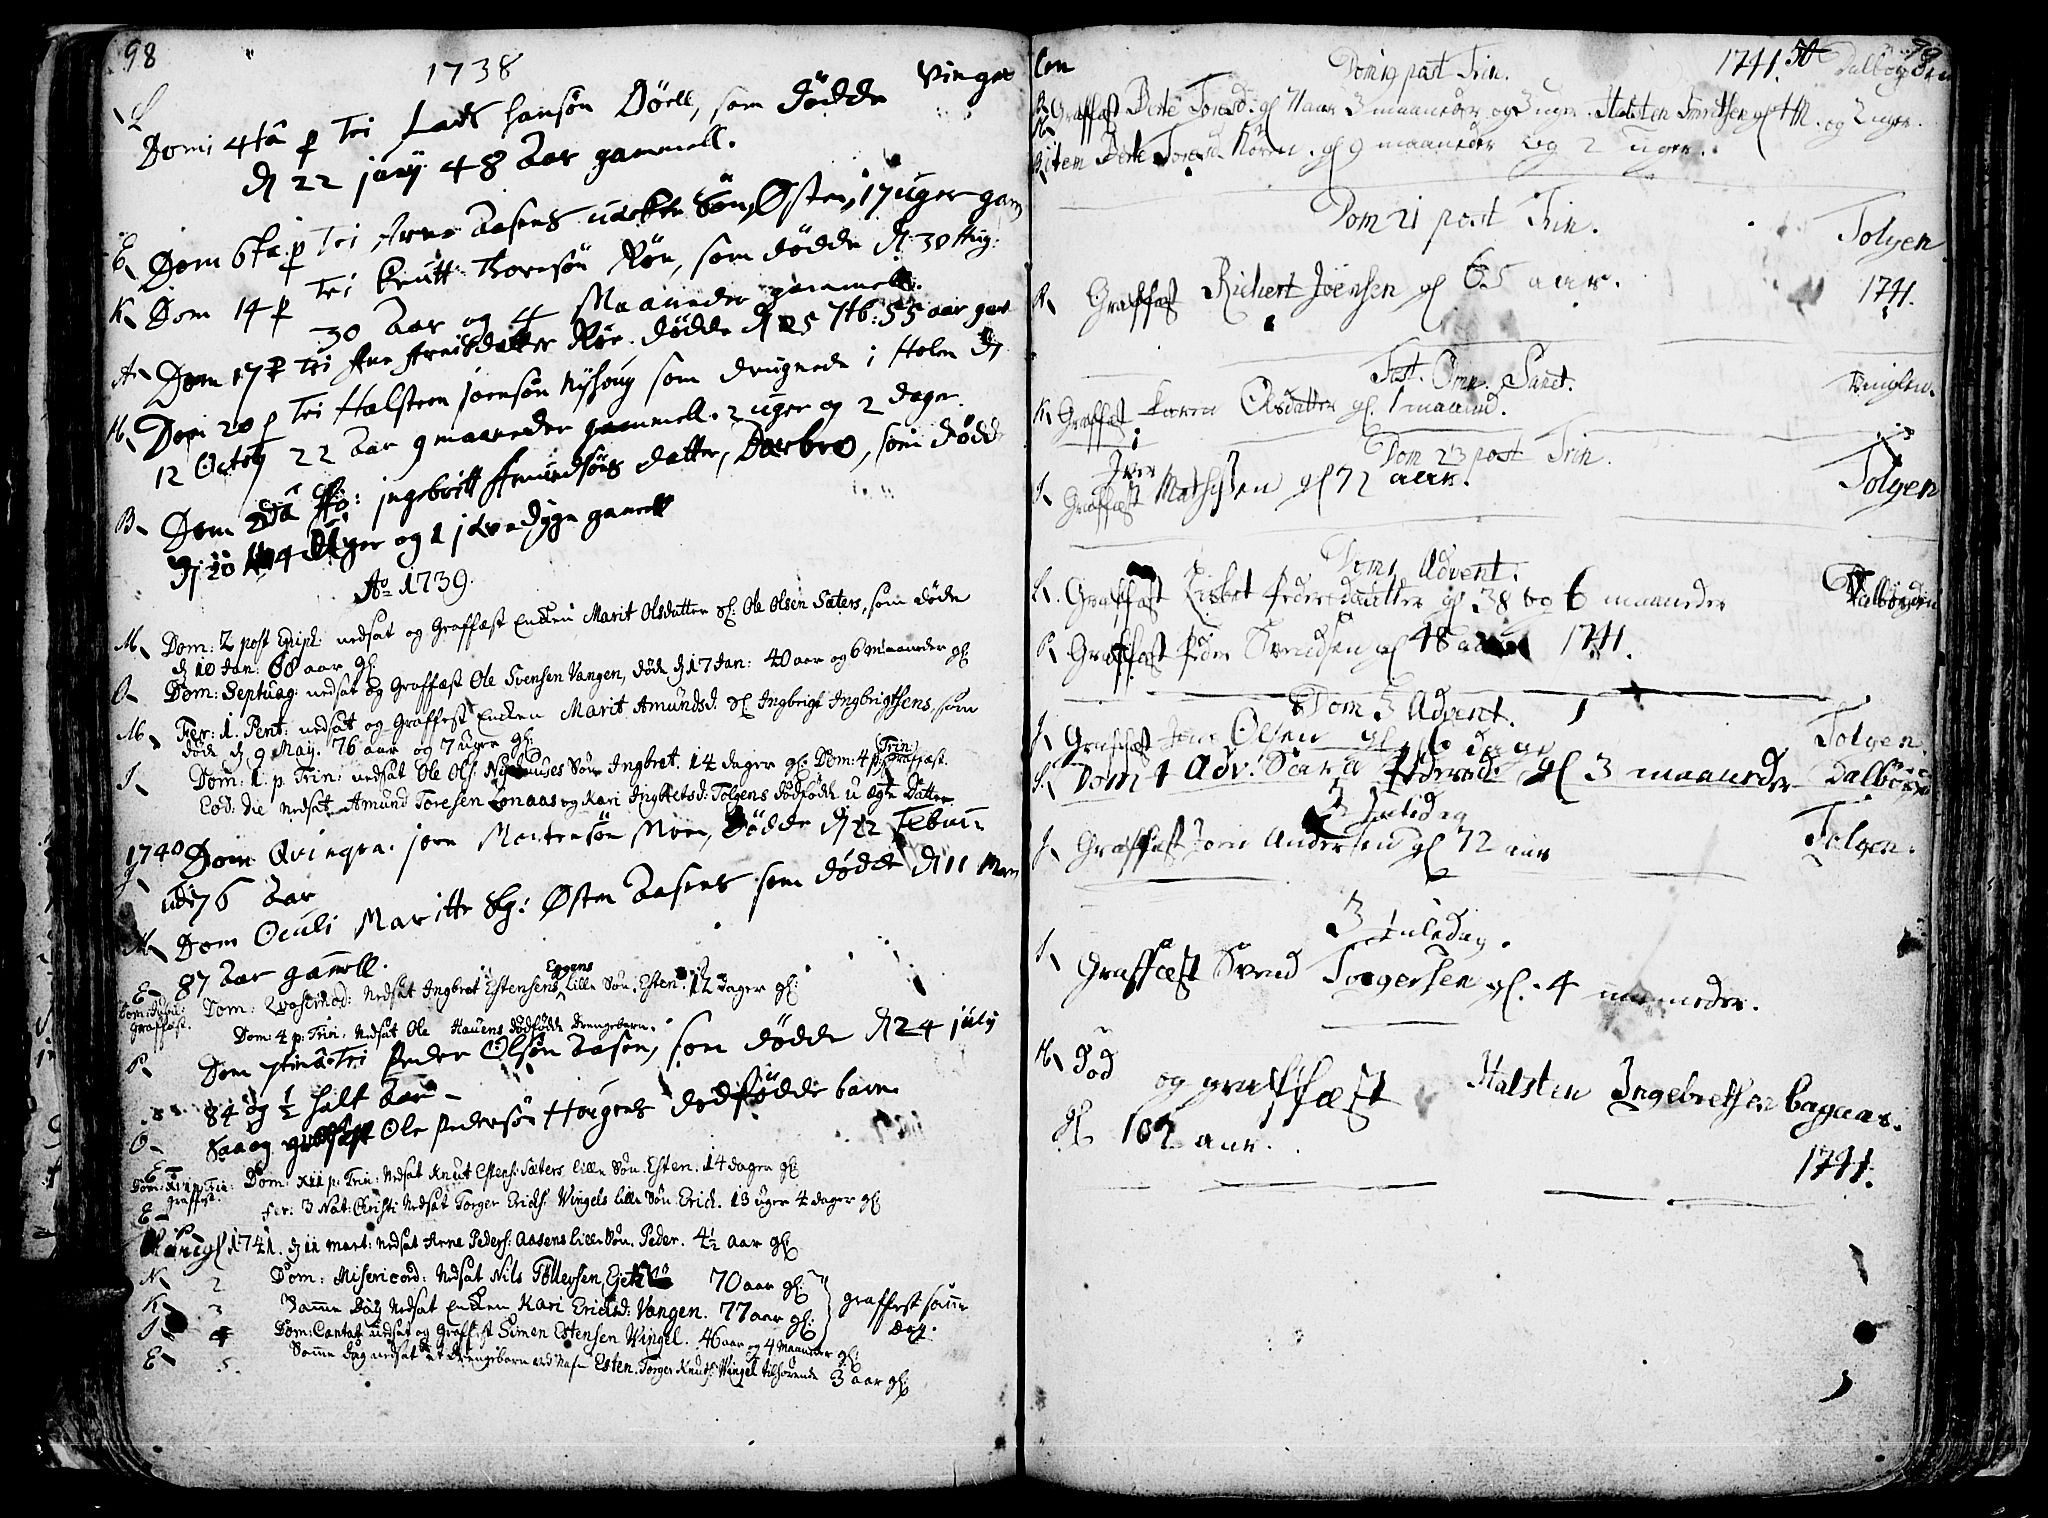 98
1738
Vinger
L Domi 4ta p Tri Lads Hansøn Døell, som dödde
d 22 juny 48 Aar gammell.
E Dom 6ta p Tri Arne Aasens Søn, Østen, 17 uger gam
K Dom 14 p Tri Knutt Thoresøn Røn, som dødde d: 30 Aug:
30 Aar og 4 Maaneder gammell.
A Dom 17 p Tri Ane Arnisdatter Røe. dødde d 25 7tb: 55 aar gam
H Dom 20 p Tri Halsteen joensøn Nyhoug som drugnede i Holen d
12 Octob 22 Aar 9 maaneder gammell. 2 uger og 2 dager.
B Dom 2da Ad: jngebrett Amundsøns datter, Barbro, som dødde
d 20 4 Uger og 1 jævndygn gamell
Ao 1739.
M Dom: 2 post Epiph: nedsat og Graffæst Encken Marit Olsdatter Sl: Ole Olsen Sæters, som døde
d 10 Jan: 68 aar gl:
O Dom: Septuag: nedsat og Graffæst Ole Svensen Vangen, døde d 17 Jan: 40 aar og 6 Maaneder gl
M Fer: 1. Pent: nedsat og Graffest Encken Marit Amundsd. Sl Ingbrigt Ingbrigtsens, som
døde d 9 May. 76 aar og 7 uger gl:
J Dom: 1. p. Trin: nedsat Ole Ols: Nyhuuses Søn Ingbret. 14 dager gl: Dom: 4 p: Trin Graffæst.
Eod: die nedsat Amund Toresen Lonaas og Kari Ingbretsd: Tolgens dødfødde u-ægte Datter
1740 Dom Qvinqva. jorn Mortensøn Moen, Dødde d 22 Februa
J udi 76 Aar
M Dom Oculi Maritte Sl: Østen Aasens som dødde d 11 Mar
87 Aar gamell.
E Dom: Qvasimod: Nedsat Ingbret Estensens Eggens lille Søn. Esten. 12 Dager gl:
Dom: Jubil: Graffæst.
Dom: 4 p: Trin: Nedsat Ole Hauens dødfødde Drengebarn.
P Dom 7tima Tri Peder Olsøn Aasen, som dødde d 24 july
84 og ½ halt Aar
O Saa og graffæst Ole Pedersøn Hougens dødfødde barn
E Dom: XII p: Trin: Nedsat Knut Estens: Sæters lille Søn. Esten. 14 dagen gl
Dom: XVI p: Trin: graffæst.
E Fer: 3 Nat: Christi Nedsat Torger Erichs: Vingels lille Søn Erich. 13 uger 4 dager gl
1741. d 11 Mart: nedsat Arne Peders: Aasens lille Søn. Peder. 4½ Aar gl
N 2 Dom: Misericord: Nedsat Nils Tøllevsen, 70 aar gl:
K 3 Samme Dag Nedsat Encken Kari Ericksd: Vangen. 77 aar gl: graffest samme dag.
4 Dom: Cantat nedsat og Graffest Simen Estensen Vingel. 46 aar og 4 Maaneder gl:
E 5 Samme dag nedsat et Drengebarn ved Nafn Esten. Torger Knuds: Vingel tilhørende 3 aar gl
Dom 19 post Trin.
1741.
Dalbøyden
99
Graffæst Berte Toresd: gl 71 aar 3 maaneder og 3 uger. Halsten gl 4 M. og 2 uger.
item Berte gl 9 maaneder og 2 uger.
Dom 21 post Trin.
Tolgen
R Graffæst Richert Joensen gl 65 aar.
1741.
Fest. Omn. Sanct.
K Graffæst Karen Olsdatter gl. 1 maaned.
Dom 23 post Trin.
J Graffæst Iver Mathisen gl 72 aar.
Tolgen
Dom 1 Advent.
L. Graffæst Lisbet Pedersdatter gl 38 og 6 maaneder
Dalbøyden
P Graffæst Peder Svendsen gl 48 1741.
Dom 3 Advent.
J Graffæst Jon Olsen gl 16 dage
Tolgen.
S. Dom 4 Adv: Siara Pedersd: gl 3 maaneder
2 Juledag
J Graffæst Joen Andersen gl 72 aar
Tolgen.
3 Juledag.
S Graffæst Svend Torgersen gl. 4 maaneder.
H Død og graffæst Halsten Ingebretsen
gl 102 aar.
1741.